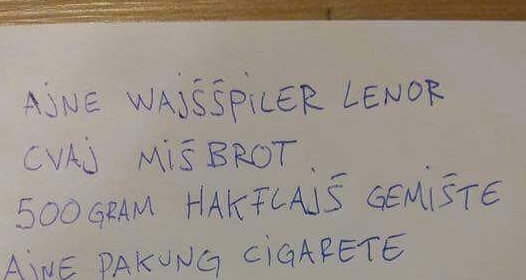 AJNE WAJŠŠPILER LENOR
CVAJ MIŠBROT
500 GRAM HAKFLAJŠ GEMIŠTE
AJNE PAKUNG CIGARETE